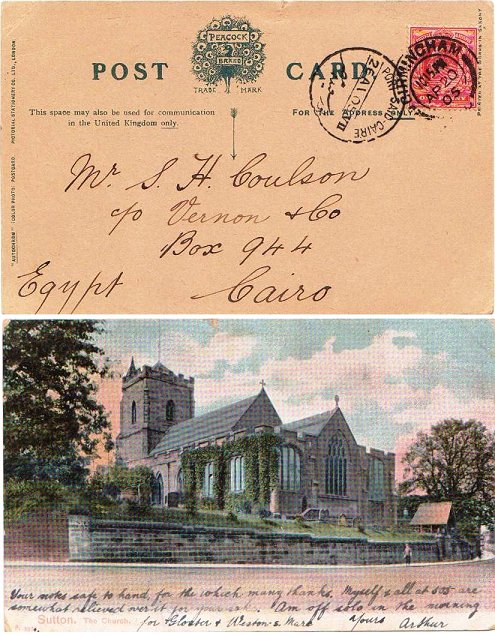 PEACOCK
2
BRAND
TRADE MARK
POST CARD
This space may also be used for communication
in the United Kingdom only.
FOR THE ADDRESS ONLY.
"AUTOCHROM" (COLOR PHOTO) POSTCARD
PICTORIAL STATIONERY CO. LTD., LONDON
BIRMINGHAM
AP 20
05
PORT-SAID-CAIRE
Mr. S. H. Coulson
c/o Vernon & Co
Box 944
Egypt Cairo
Your notes safe to hand, for the which many thanks. Myself & all at 505 are
somewhat relieved over it for your sake. Am off solo in the morning
for Gloster & Weston S. Mare Yours Arthur
Sutton. The Church.